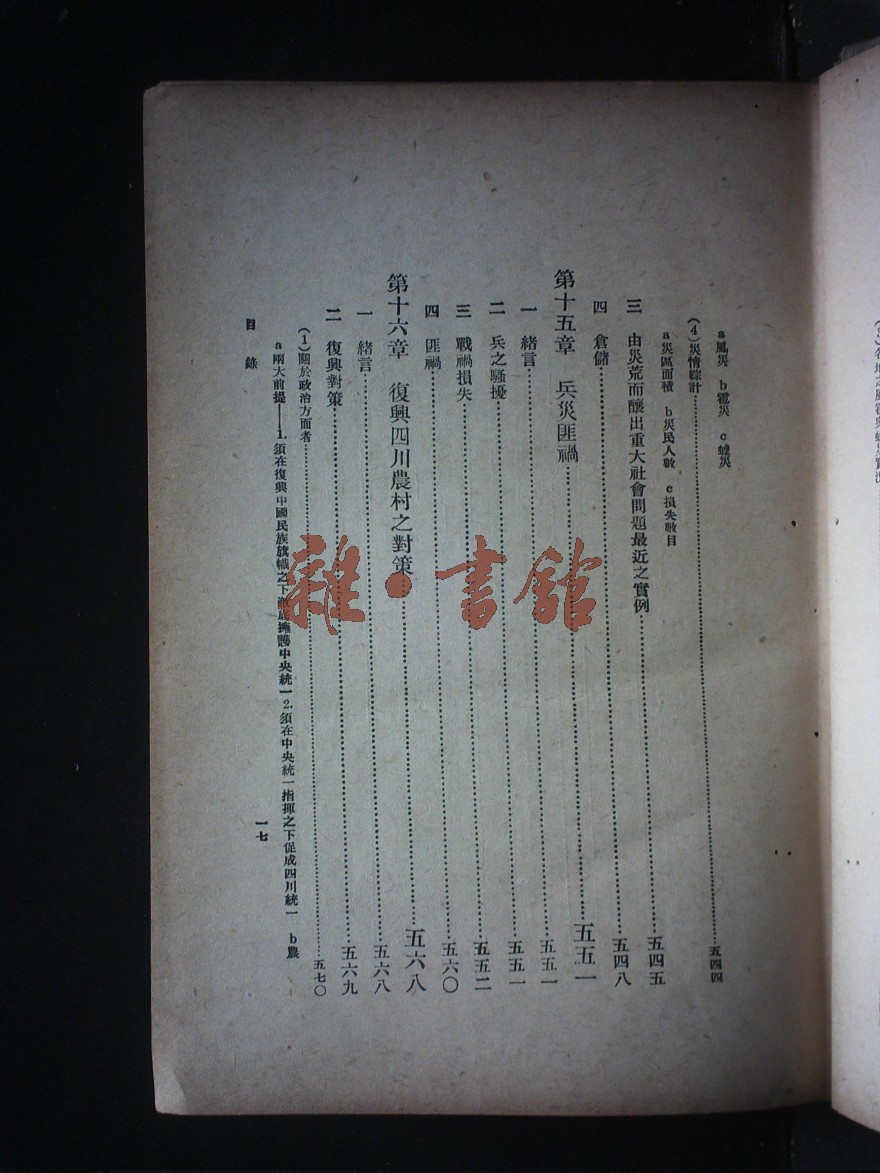 a 風災 b 雹災 c 蝗災
(4)災情綜計……五四四
a 災區面積 b 災民人數 c 損失數目
三 由災荒而釀出重大社會問題最近之實例……五四五
四 倉儲……五四八
第十五章 兵災匪禍……五五一
一 緒言……五五一
二 兵之騷擾……五五一
三 戰禍損失……五五二
四 匪禍……五六〇
第十六章 復興四川農村之對策……五六八
一 緒言……五六八
二 復興對策……五六九
(1)關於政治方面者……五七〇
a 兩大前提——1.須在復興中國民族旗幟之下徹底擁護中央統一 2.須在中央統一指揮之下促成四川統一 b 農
目錄
一七
雜·書館